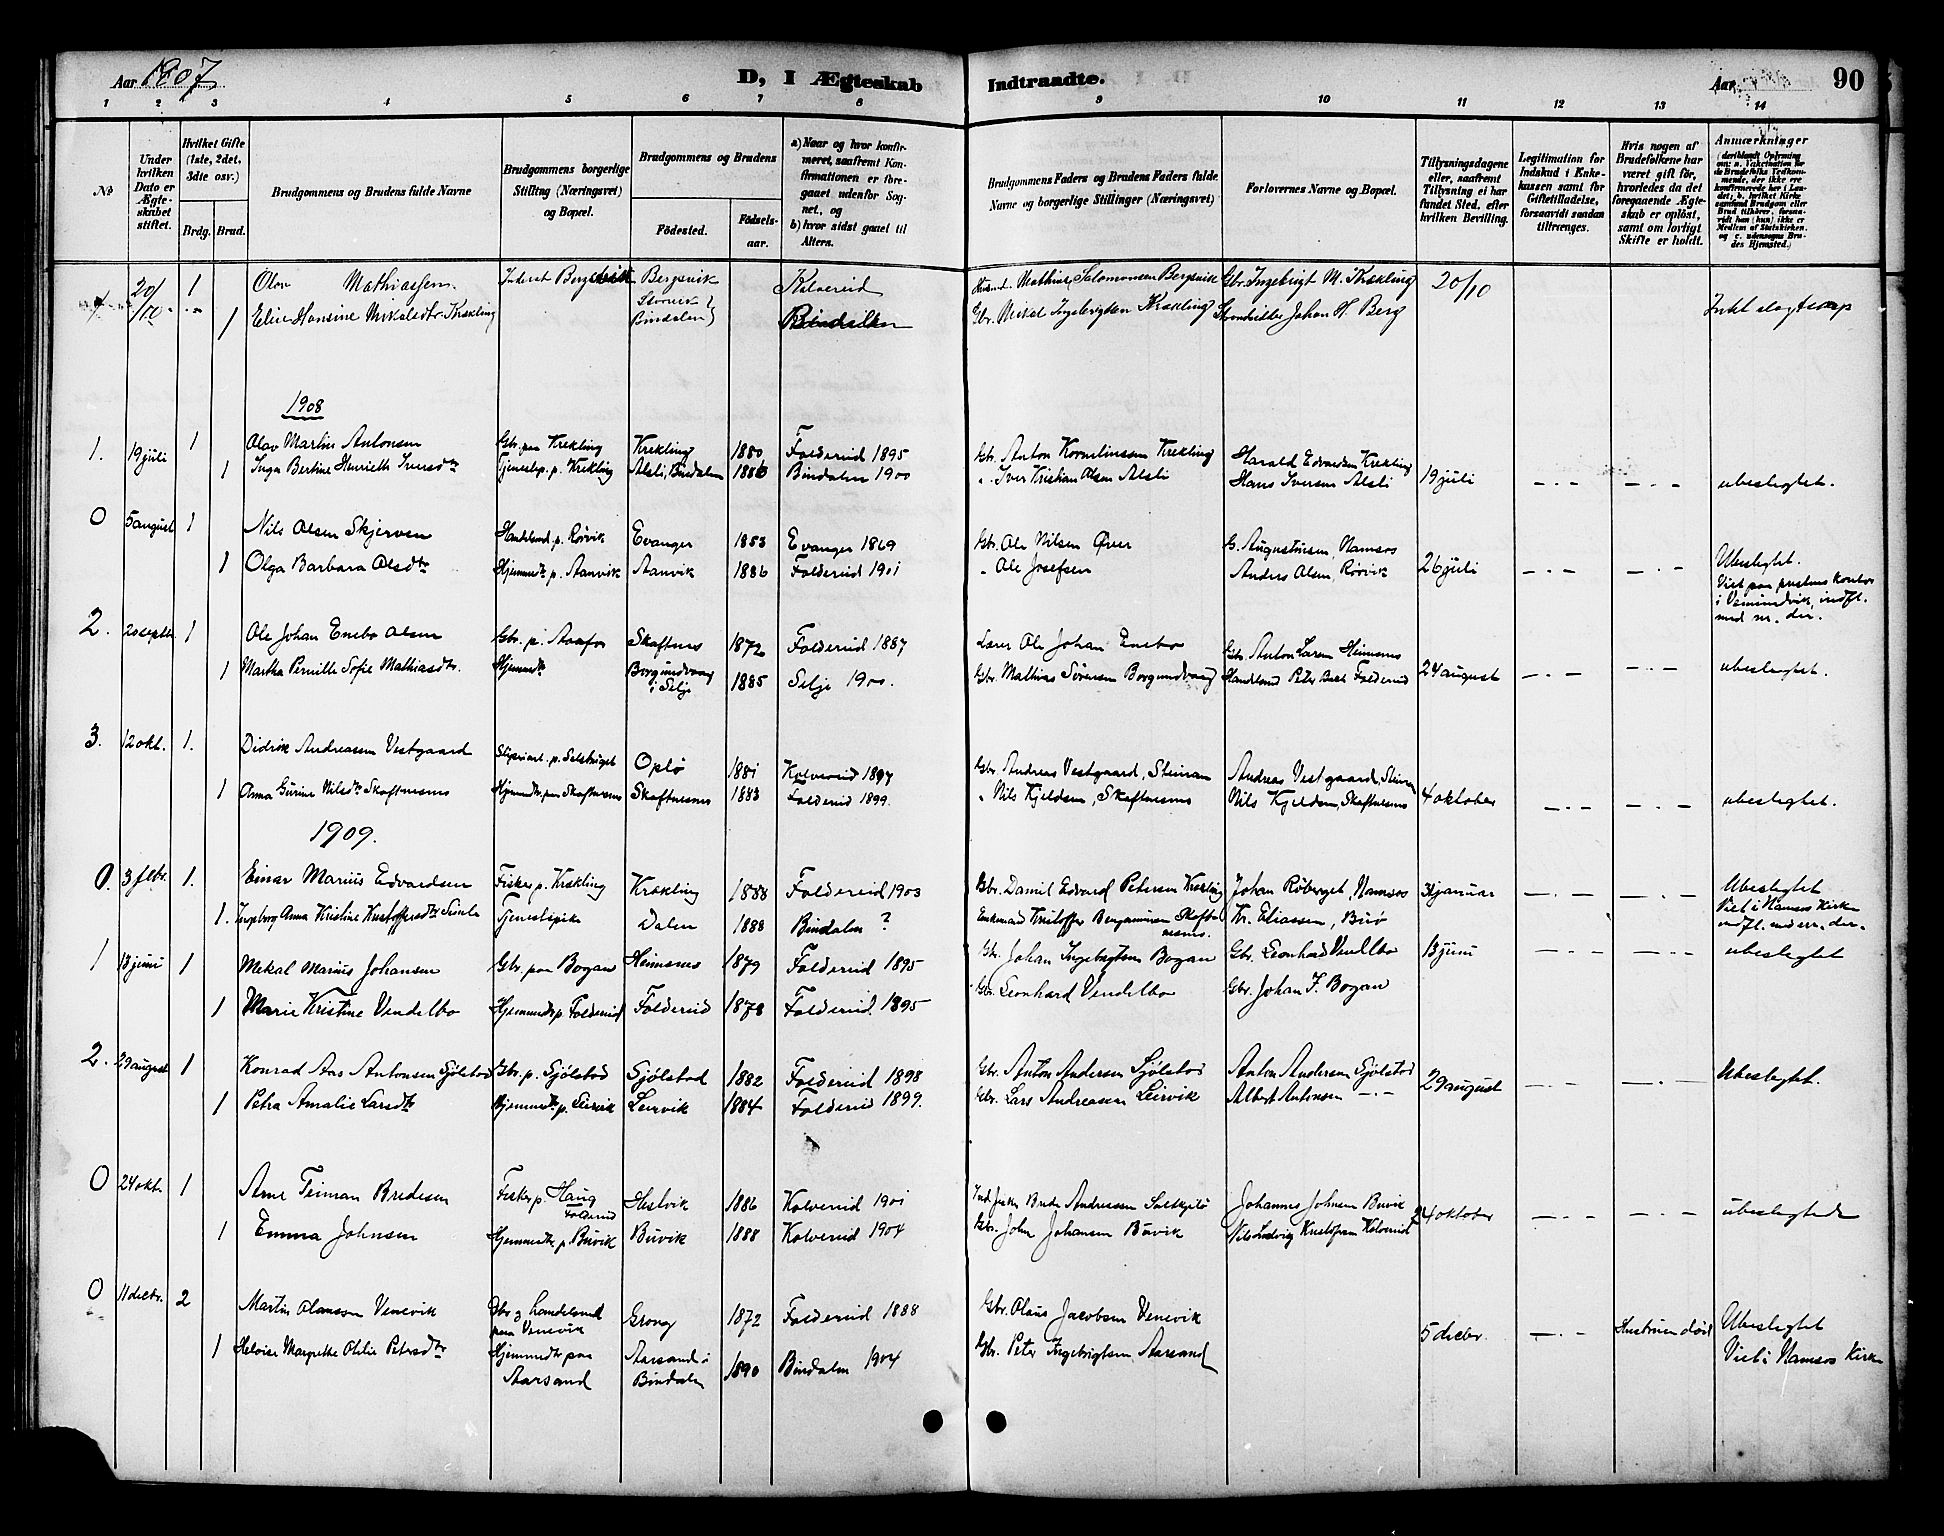 Aar 1907
D, I Ægteskab
Indtraadte.
Aar
90
1 2 3 4 5 6 7 8 9 10 11 12 13 14
No
Under hvilken Dato er Ægteskabet stiftet.
Hvilket Gifte (1ste, 2det, 3die osv.)
Brdg. Brud.
Brudgommens og Brudens fulde Navne
Brudgommens borgerlige Stilling (Næringsvei) og Bopæl.
Brudgommens og Brudens
Födested.
Födselsaar.
a) Naar og hvor konfirmeret, saafremt Konfirmationen er foregaaet udenfor Sognet, og
b) hvor sidst gaaet til Alters.
Brudgommens Faders og Brudens Faders fulde Navne og borgerlige Stillinger (Næringsvei)
Forlovernes Navne og Bopæl.
Tillysningsdagene eller, saafremt Tillysning ei har fundet Sted, efter hvilken Bevilling.
Legitimation for Indskud i Enkekassen samt for Giftetilladelse, forsaavidt saadan tiltrænges.
Hvis nogen af Brudefolkene har været gift för, hvorledes da det foregaaende Ægteskab er oplöst, samt om lovligt Skifte er holdt.
Anmærkninger
20/10 1 Olav Mathiassen Inderst Bergsvik Bergsvik Kolvereid Mathias Salomonsen Bergsvik Gbr. Ingebrigt M. Krækling 20/10
1 Elise Hansine Mikalsdtr. Krækling Bindalen Bindalen Gbr. Mikal Ingebrigtsen Krækling Johan H. Berg
1908
1. 19 juli 1 Olav Martin Antonsen Gbr. paa Krekling Krekling 1880 Foldereid 1895 Gbr. Anton Kornelinssen Krekling Harald Edvardsen Krekling
1 Inga Bertine Henriette Iversdtr Tjenestep. p. Krekling Alsli, Bindalen 1886 Bindalen 1900 " Iver Kristian Olsen Alsli Hans Iversen Alsli 19 juli — . — — . — ubeslegtet.
0 5 august 1 Nils Olsen Skjerven Handelsmd. p. Rørvik Evanger 1853 Evanger 1869 Gbr. Ole Nilsen Øver G. Augustinsen, Namsos
1 Olga Barbara Olsdtr Hjemmedtr p. Aanvik Aanvik 1886 Foldereid 1901 " Ole Josefsen Anders Olsen, Rørvik 26 juli — . — — . — Ubeslegtet.
Viet paa prestens kontor
i Vemundvik, indfl.
med nr. der.
2. 20 septbr. 1 Ole Johan Enebo Olsen Gbr. p. Aanfos Skaftnes 1872 Foldereid 1887 Lærer Ole Johan Enebo Gbr. Anton Larsen Heimsnes
1 Martha Pernille Sofie Mathiasdtr. Hjemmedtr Borgundvaag i Selje 1885 Selje 1900. Gbr. Mathias Sørensen Borgundvaag Handelsmd Peter Foldereid 24 august — . — — . — ubeslegtet.
3. 12 okt. 1. Didrik Andreassen Vestgaard Oplø 1881 Kolvereid 1897 Gbr. Andreas Vestgaard, Steinan Andreas Vestgaard, Steinan
1 Anna Gurine Nilsdtr Skaftnesmo Hjemmedtr. paa Skaftnesmo Skaftnesmo 1883 Foldereid 1899. " Nils Kjeldsen, Skaftnesmo Nils Kjeldsen, Skaftnesmo 4 oktober — . — — . — ubeslegtet.
1909.
0. 3 febr. 1. Einar Marius Edvardsen Fisker p. Krækling Krækling 1888 Foldereid 1903 Gbr. Daniel Edvard Petersen Krækling Johan Røberget, Namsos 31 januar — . — — . — Ubeslegtet
1. Ingeborg Anna Kristine Kristoffersdtr Tjenestepike Dalen 1888 Bindalen ? Enkemand Kristoffer Benjaminsen Skaftnesmo. Kr. Eliassen, Buø Viet i Namsos Kirke
1 13 juni 1 Mekal Marius Johansen Gbr. paa Bogan Heimsnes 1879 Foldereid 1895 Gbr. Johan Ingebrigtsen Bogan Gbr. Leonhard Vendelbo 13 juni — . — — . — ubeslegtet
1 Marie Kristine Vendelbo Hjemmedtr p. Foldereid Foldereid 1878 Foldereid. 1895 Gbr. Leonhard Vendelbo Gbr. Johan I. Bogan
2. 29 august 1 Konrad Aas Antonsen Sjølstad Gbr. p. Sjølstad Sjølstad 1882 Foldereid 1898 Gbr. Anton Andersen Sjølstad Anton Andersen Sjølstad
1 Petra Amalie Larsdtr Hjemmedtr p. Leirvik Leirvik 1884 Foldereid 1899. Gbr. Lars Andreassen Leirvik Albert Antonsen — . — 29 august — . — — . — Ubeslegtet.
0 24 okt. 1 Arne Teiman Bredesen Fisker p. Haug Foldereid Hestvik 1886 Kolvereid 1901 Brede Andreassen Johannes Johnsen Buvik
1 Emma Johnsen Hjemmedtr p. Buvik Buvik 1888 Kolvereid 1904 Gbr. John Johansen Buvik Nils Ludvig Kristofersen Kolvereid 24 oktober — . — — . — ubeslegtede
0 11 decbr. 2 Martin Olausson Venevik Gbr og handelsmd paa Venevik Grong 1872 Foldereid 1888 Gbr. Olaus Jacobsen Venevik
1 Heloise Margrethe Otilie Petersdtr Hjemmedtr paa Aarsand Aarsand i Bindalen 1890 Bindalen 1904 Gbr. Peter Ingebrigtsen Aarsand 5 decbr. — . — Hustruen død Ubeslegtet
Viet i Namsos Kirke